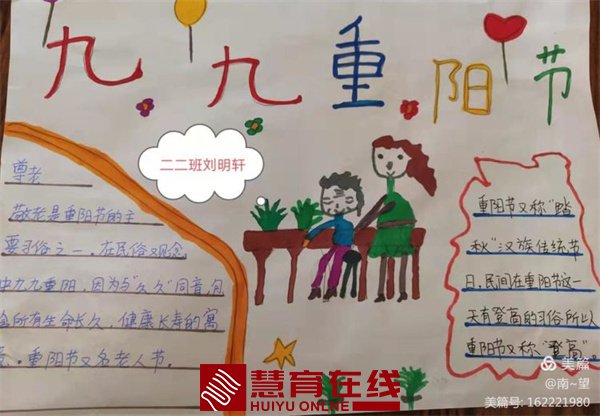 九九重阳节
二二班刘明轩
尊老
敬老是重阳节的主
要习俗之一。在民俗观念
中九九重阳，因为与“久久”同音，包
含所有生命长久、健康长寿的寓
意。重阳节又名老人节。
重阳节又称“踏
秋”汉族传统节
日，民间在重阳节这一
天有登高的习俗所以
重阳节又称“登高
慧育在线
HUIYU ONLINE
美篇
@南~望
美篇号: 162221980